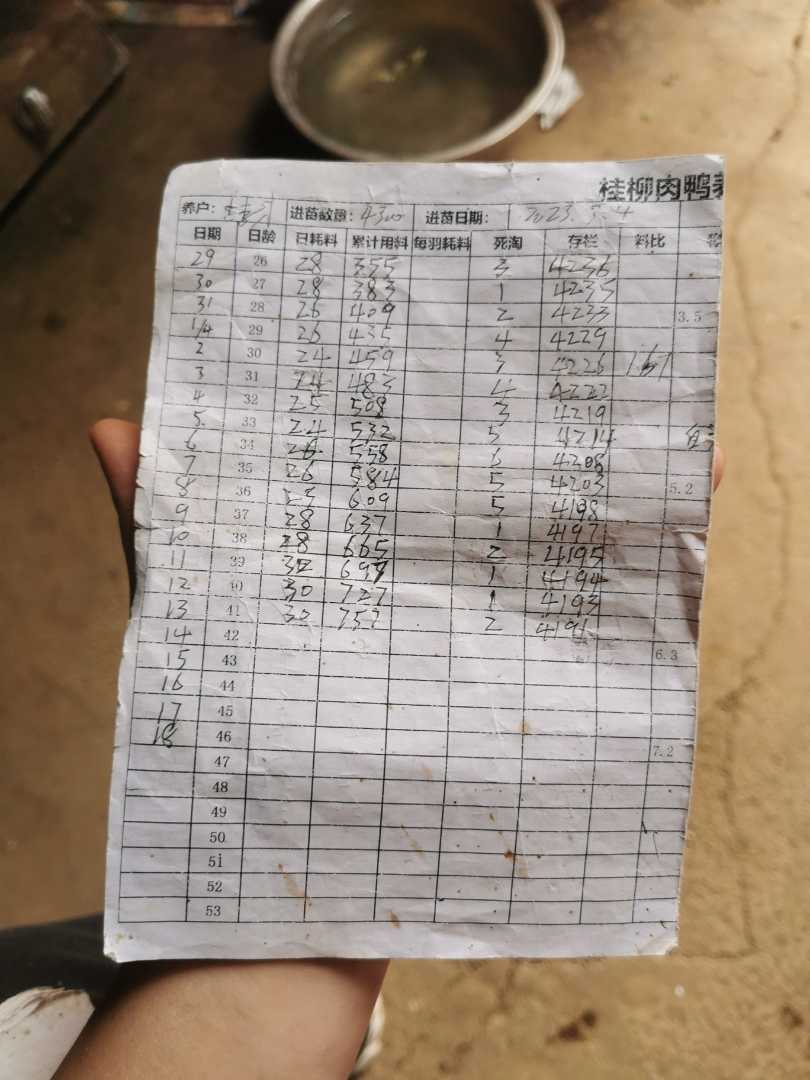 桂柳肉鸭养
养户: 进苗数量: 4300 进苗日期: 2023.3.4
日期 日龄 日耗料 累计用料 每羽耗料 死淘 存栏 料比
29 26 28 355 3 4236
30 27 28 383 1 4235
31 28 26 409 2 4233 3.5
1/4 29 26 435 4 4229
2 30 24 459 3 4226
3 31 24 483 4 4222
4 32 25 508 3 4219
5 33 24 532 5 4214
6 34 26 558 6 4208
7 35 26 584 5 4203 5.2
8 36 25 609 5 4198
9 37 28 637 1 4197
10 38 28 665 2 4195
11 39 32 697 1 4194
12 40 30 727 1 4193
13 41 30 757 2 4191
14 42 6.3
15 43
16 44
17 45
18 46 7.2
47
48
49
50
51
52
53